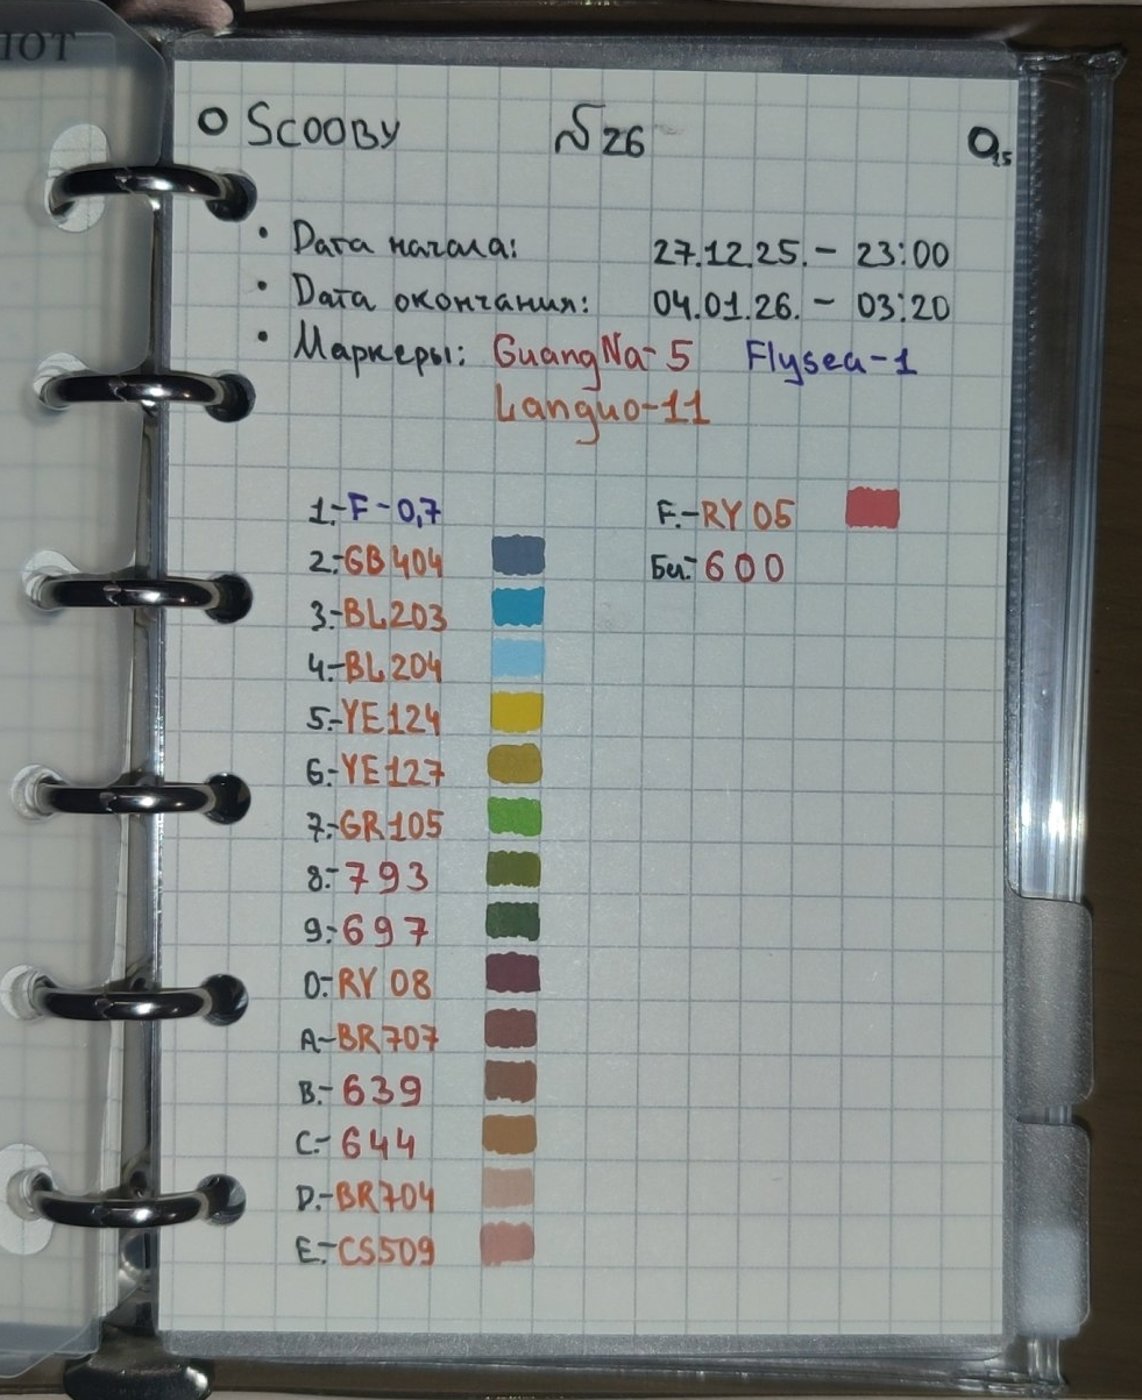 ЮТ
O SCOOBY №26 O 15
• Дата начала: 27.12.25. – 23:00
• Дата окончания: 04.01.26. – 03:20
• Маркеры: GuangNa-5 Flysea-1
Languo-11
1.-F-0,7 F.-RY05
2.-GB404 Бл.-600
3.-BL203
4.-BL204
5.-YE124
6.-YE127
7.-GR105
8.-793
9.-697
0.-RY08
A-BR707
B.-639
C-644
D.-BR704
E.-CS509